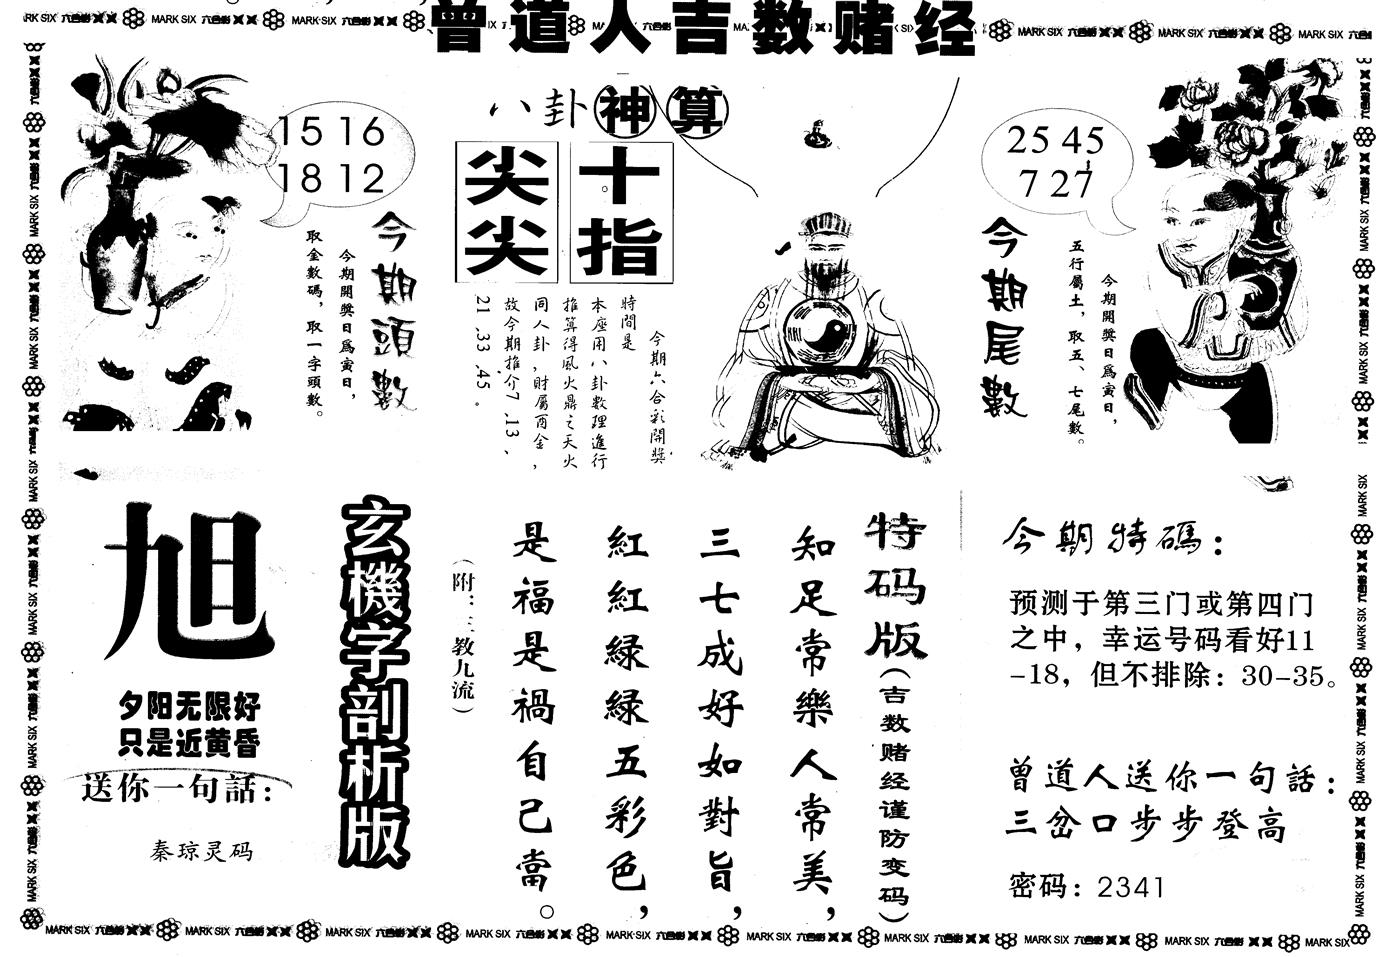 曾道人吉数赌经
八卦神算
15 16
18 12
今期頭數
今期開獎日爲寅日，
取金數碼，取一字頭數。
十指
尖尖
今期六合彩開獎
時間是
本座用八卦數理進行
推算得風火鼎之天火
同人卦，財屬酉金，
故今期推介7、13、
21、33、45。
25 45
7 27
今期尾數
今期開獎日爲寅日，
五行屬土，取五、七尾數。
旭
夕阳无限好
只是近黄昏
送你一句話：
秦琼灵码
玄機字剖析版
特码版（吉数赌经谨防变码）
知足常樂人常美，
三七成好如對旨，
紅紅緑緑五彩色，
是福是禍自己當。
（附：三教九流）
今期特碼：
预测于第三门或第四门
之中，幸运号码看好11
-18，但不排除：30-35。
曾道人送你一句話：
三岔口步步登高
密码：2341
MARK SIX 六合彩